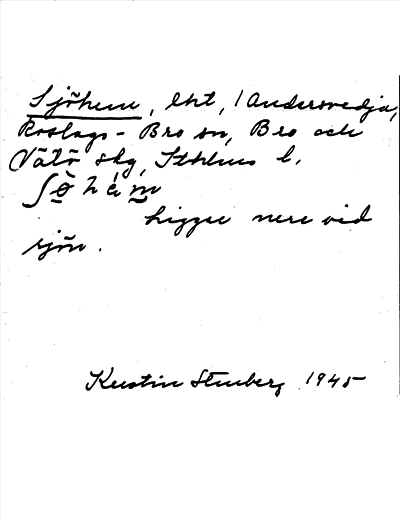 Sjöhem, lht, 1 Andersvedja,
Roslags-Bro sn, Bro och
Vätö skg, Sthlms l.
ligger nere vid
sjön.
Kerstin Stenberg 1945